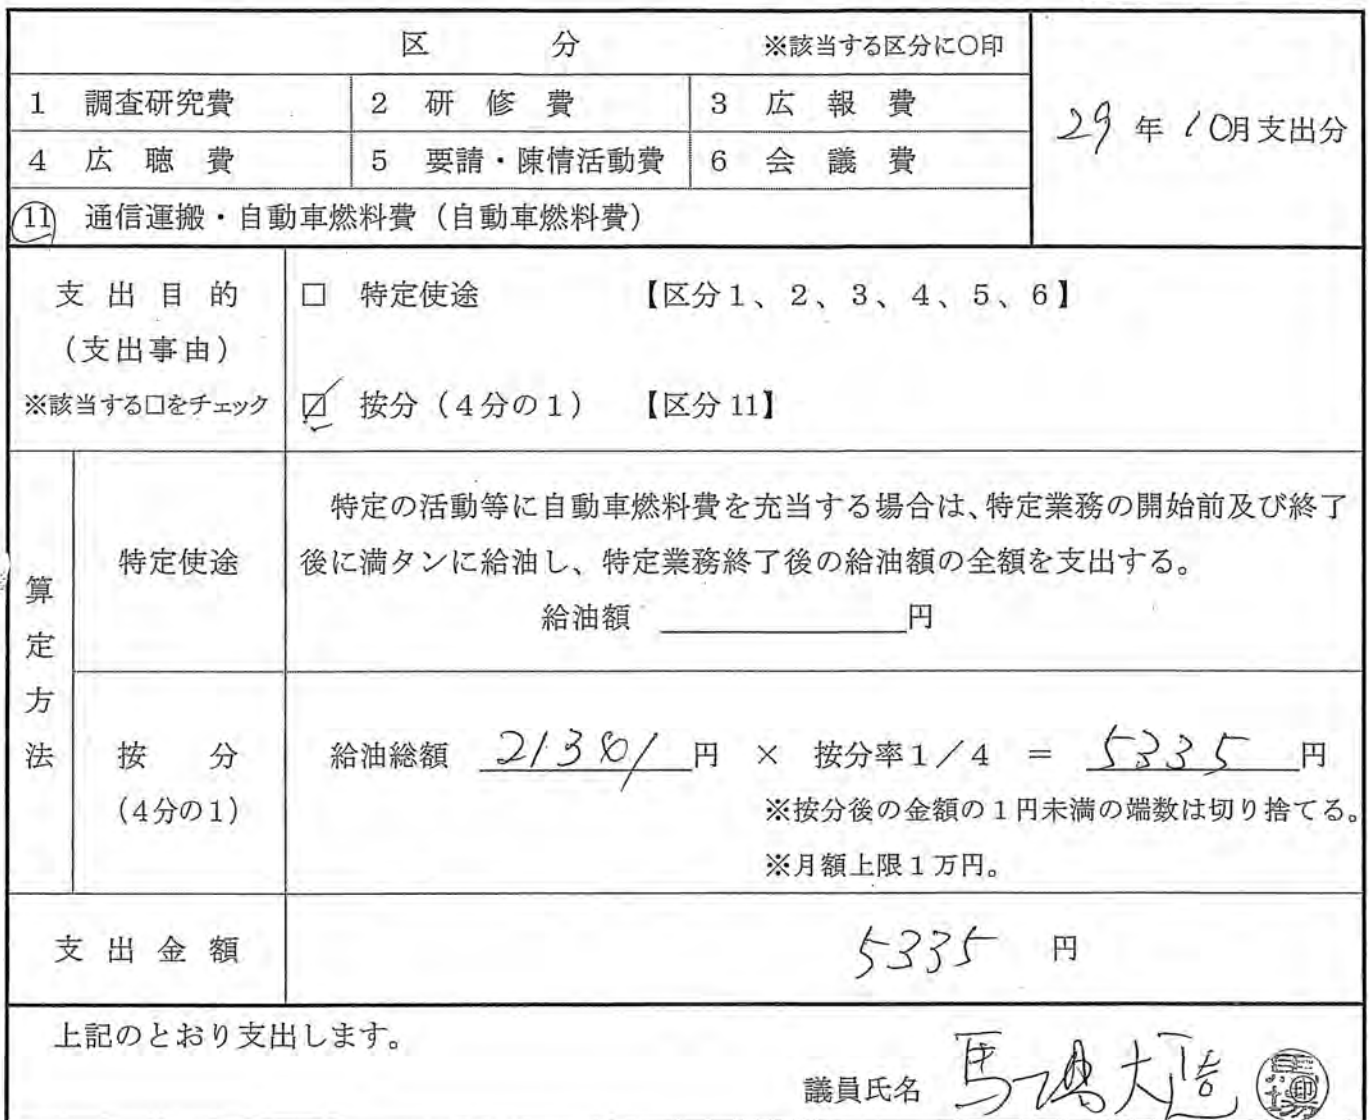 区 分 ※該当する区分に○印
1 調査研究費 2 研 修 費 3 広 報 費
29 年 10月支出分
4 広 聴 費 5 要請・陳情活動費 6 会 議 費
11 通信運搬・自動車燃料費（自動車燃料費）
支 出 目 的
（支出事由）
※該当する□をチェック
□ 特定使途 【区分１、２、３、４、５、６】
☑ 按分（４分の１） 【区分 11】
算定方法
特定使途
特定の活動等に自動車燃料費を充当する場合は、特定業務の開始前及び終了
後に満タンに給油し、特定業務終了後の給油額の全額を支出する。
給油額 ＿＿＿＿＿＿円
按 分
（4分の１）
給油総額 円 × 按分率１／４ ＝ 5335 円
※按分後の金額の１円未満の端数は切り捨てる。
※月額上限１万円。
支 出 金 額 5335 円
上記のとおり支出します。
議員氏名 馬場大造